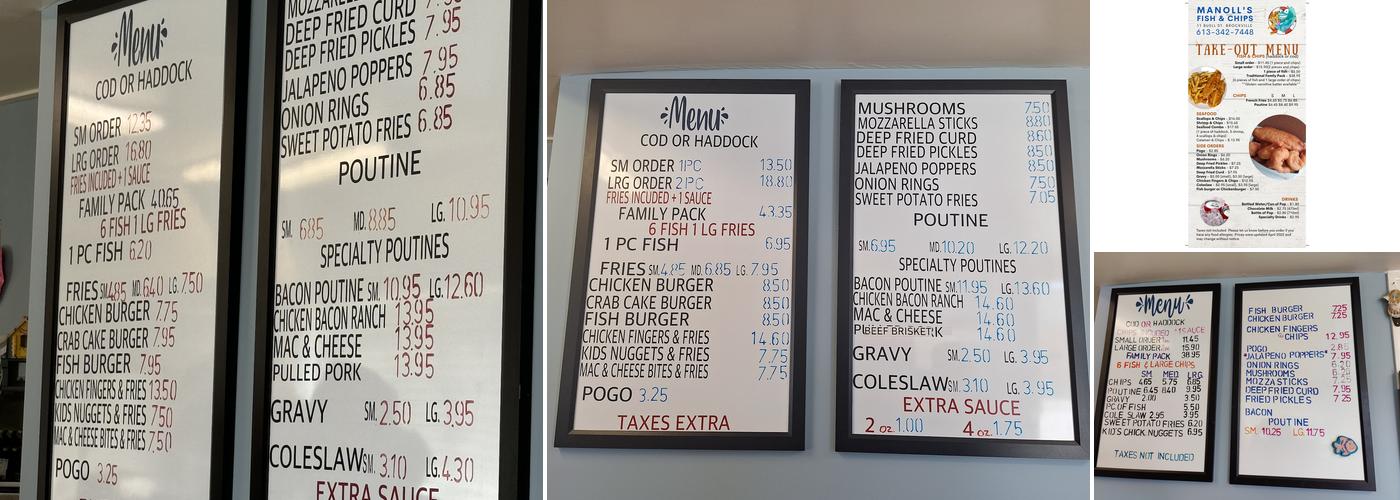 Menu
COD OR HADDOCK
SM ORDER 12.35
LRG ORDER 16.80
FRIES INCLUDED + 1 SAUCE
FAMILY PACK 40.65
6 FISH 1 LG FRIES
1 PC FISH 6.20
FRIES SM. 4.85 MD. 6.40 LG. 7.50
CHICKEN BURGER 7.75
CRAB CAKE BURGER 7.95
FISH BURGER 7.95
CHICKEN FINGERS & FRIES 13.50
KIDS NUGGETS & FRIES 7.50
MAC & CHEESE BITES & FRIES 7.50
POGO 3.25
DEEP FRIED CURD 7.95
DEEP FRIED PICKLES
JALAPENO POPPERS 7.95
ONION RINGS 6.85
SWEET POTATO FRIES 6.85
POUTINE
SM. 6.85 MD. 8.85 LG. 10.95
SPECIALTY POUTINES
BACON POUTINE SM. 10.95 LG. 12.60
CHICKEN BACON RANCH 13.95
MAC & CHEESE 13.95
PULLED PORK 13.95
GRAVY SM. 2.50 LG. 3.95
COLESLAW SM. 3.10 LG. 4.30
EXTRA SAUCE
Menu
COD OR HADDOCK
SM ORDER 1PC 13.50
LRG ORDER 2PC 18.80
FRIES INCLUDED + 1 SAUCE
FAMILY PACK 43.35
6 FISH 1 LG FRIES
1 PC FISH 6.95
FRIES SM. 4.85 MD. 6.85 LG. 7.95
CHICKEN BURGER 8.50
CRAB CAKE BURGER 8.50
FISH BURGER 8.50
CHICKEN FINGERS & FRIES 14.60
KIDS NUGGETS & FRIES 7.75
MAC & CHEESE BITES & FRIES 7.75
POGO 3.25
TAXES EXTRA
MUSHROOMS 7.50
MOZZARELLA STICKS 8.80
DEEP FRIED CURD 8.60
DEEP FRIED PICKLES 8.50
JALAPENO POPPERS 8.50
ONION RINGS 7.50
SWEET POTATO FRIES 7.05
POUTINE
SM. 6.95 MD. 10.20 LG. 12.20
SPECIALTY POUTINES
BACON POUTINE SM. 11.95 LG. 13.60
CHICKEN BACON RANCH 14.60
MAC & CHEESE 14.60
BEEF BRISKET 14.60
GRAVY SM. 2.50 LG. 3.95
COLESLAW SM. 3.10 LG. 3.95
EXTRA SAUCE
2 oz. 1.00 4 oz. 1.75
MANOLL'S
FISH & CHIPS
11 BUELL ST. BROCKVILLE
613-342-7448
TAKE-OUT MENU
CHIPS S M L
SEAFOOD
SIDE ORDERS
DRINKS
Menu
COD OR HADDOCK
SMALL ORDER 11.45
LARGE ORDER 15.90
FAMILY PACK 38.95
6 FISH & LARGE CHIPS
SM MED LRG
CHIPS 4.65 5.75 6.85
POUTINE 6.45 8.40 9.95
GRAVY 2.00 3.50
PC. OF FISH 5.50
COLE SLAW 2.95 3.95
SWEET POTATO FRIES 6.20
KID'S CHICK. NUGGETS 6.95
TAXES NOT INCLUDED
FISH BURGER 7.25
CHICKEN BURGER 7.25
CHICKEN FINGERS
& CHIPS 12.95
POGO 2.85
"JALAPENO POPPERS" 7.95
ONION RINGS 6.20
MUSHROOMS 6.20
MOZZA STICKS 7.25
DEEP FRIED CURD 7.95
FRIED PICKLES 7.25
BACON
POUTINE
SM. 10.25 LG. 11.75